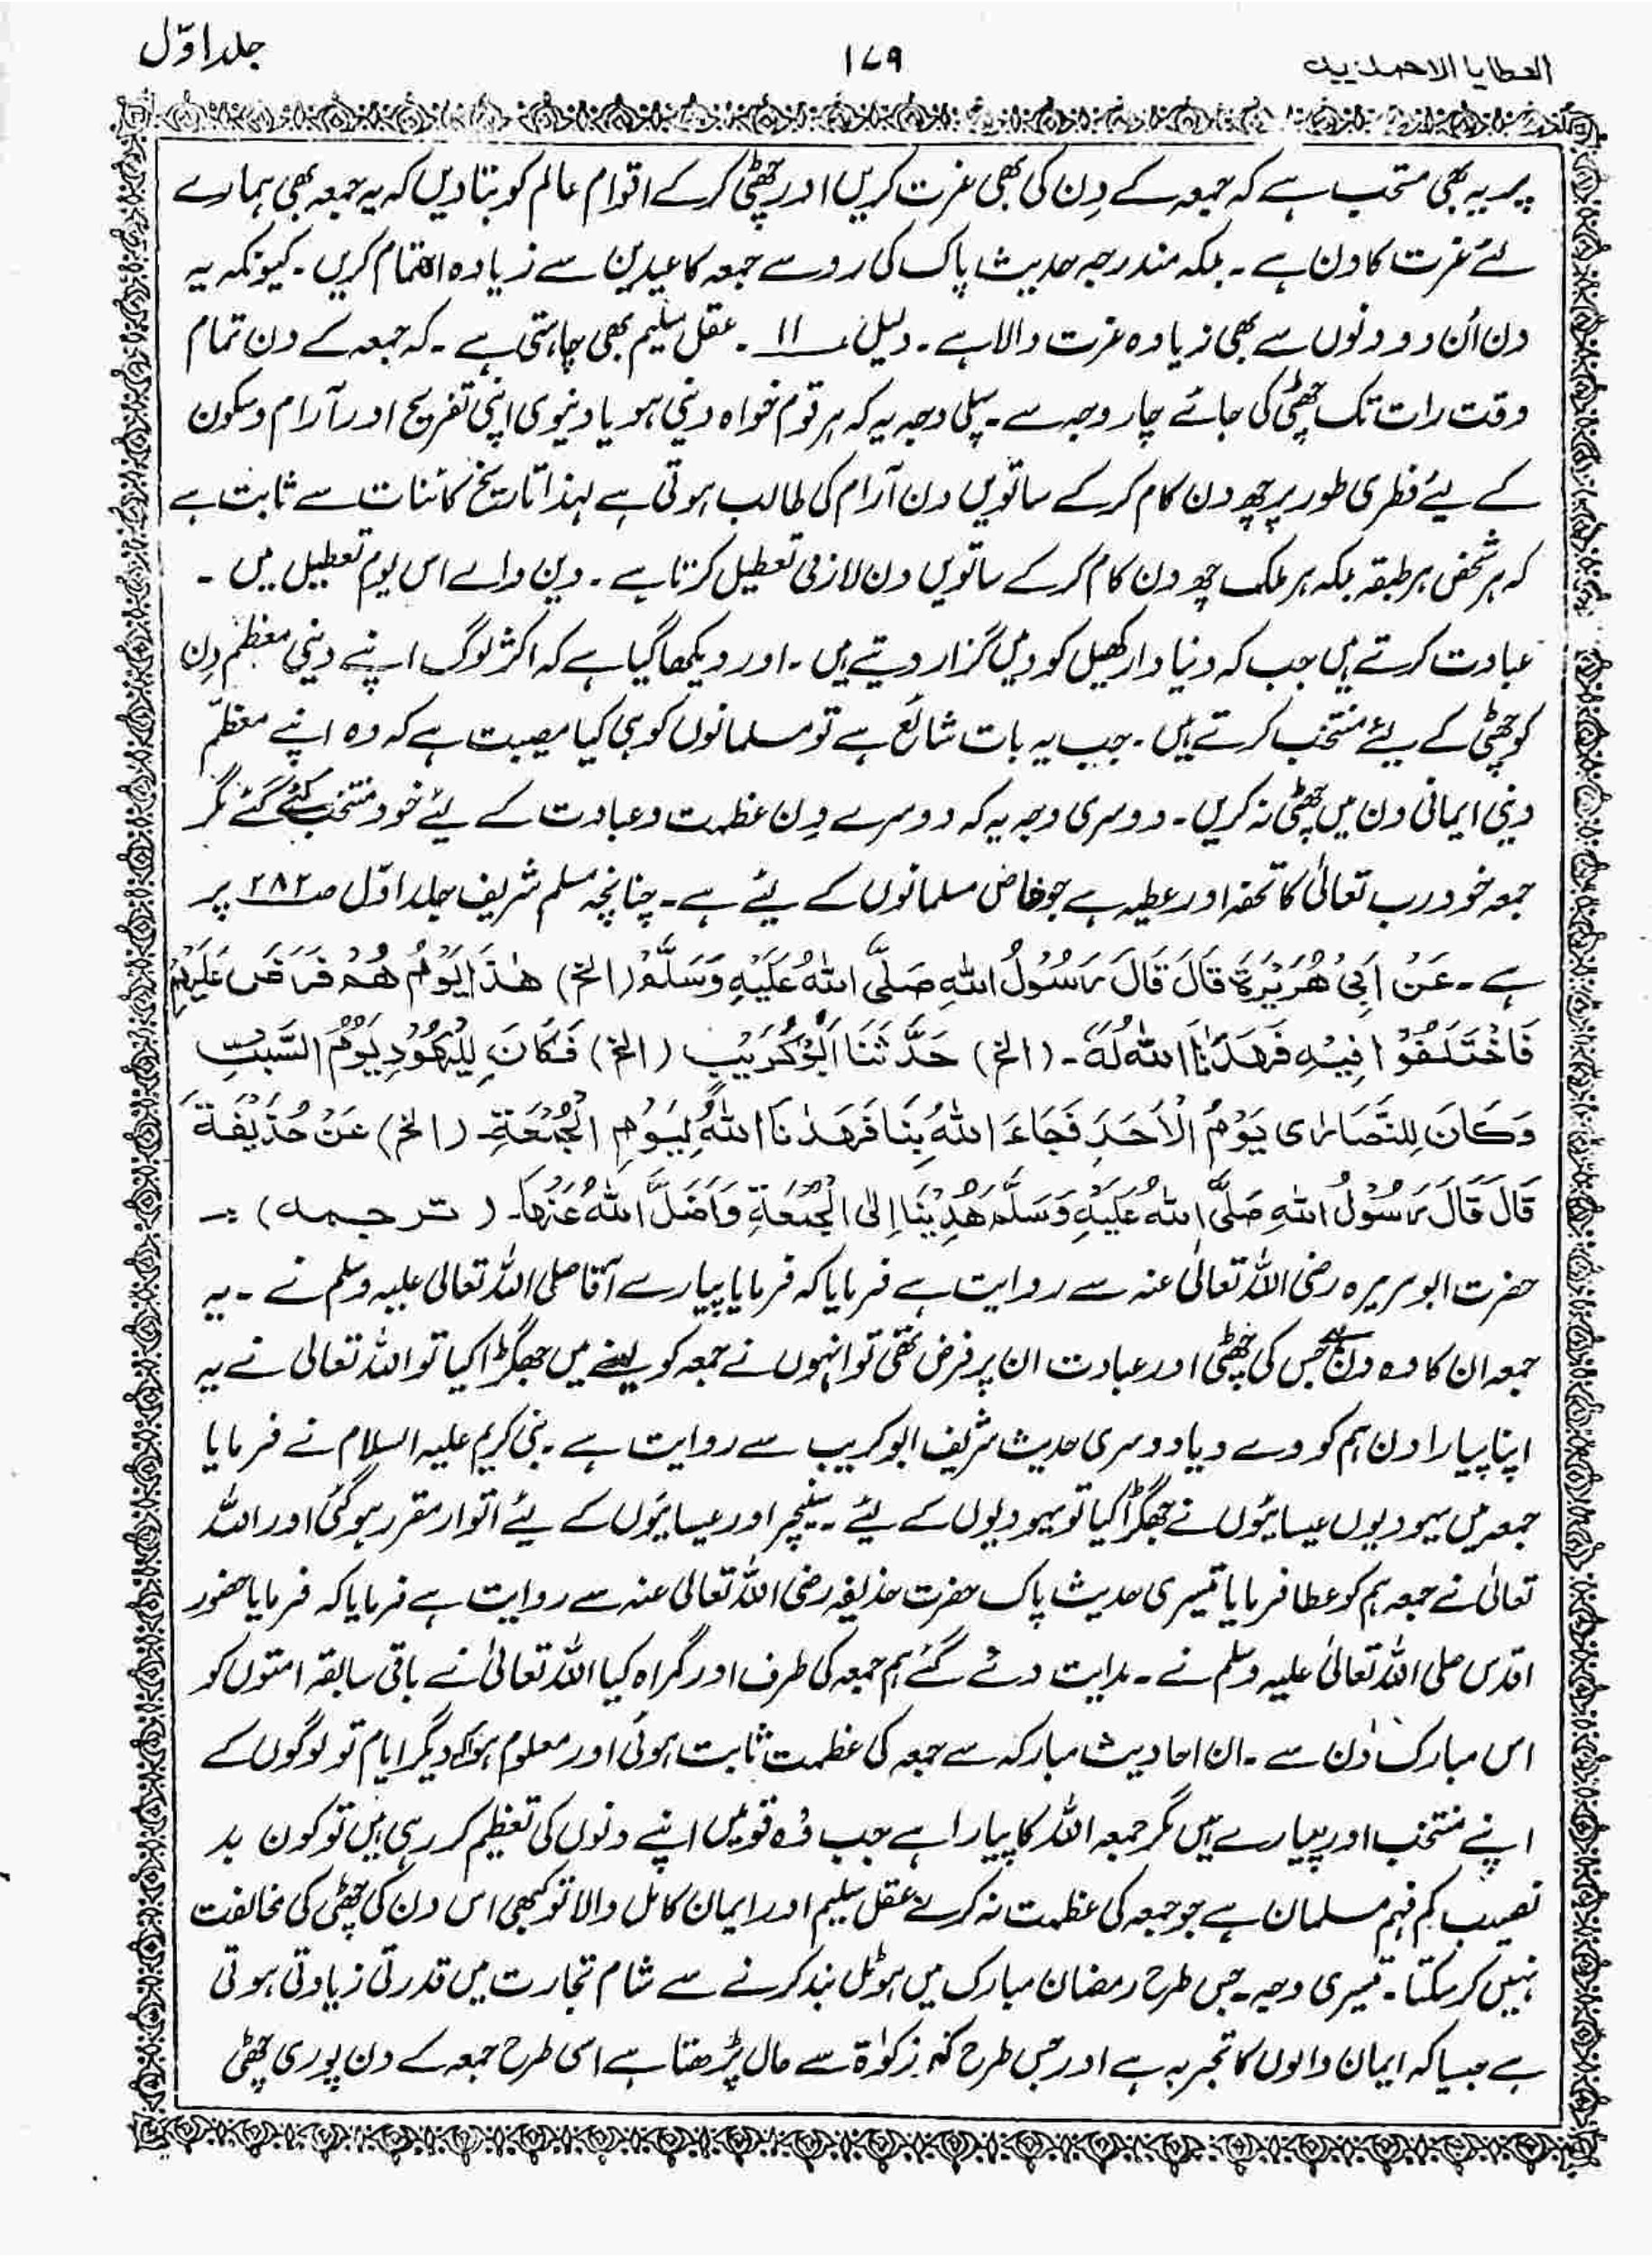 العطایا الاحمدیہ
۱۷۹
جلد اوّل
پر یہ بھی مستحب ہے کہ جمعہ کے دِن کی بھی عزت کریں اور چھٹی کر کے اقوام عالم کو بتا دیں کہ یہ جمعہ بھی ہمارے
لئے عزت کا دن ہے ۔ بلکہ مندرجہ حدیث پاک کی رو سے جمعہ کا عیدین سے زیادہ اھتمام کریں ۔ کیونکہ یہ
دن اُن دو دنوں سے بھی زیادہ عزت والا ہے ۔ دلیل ۱۱ ۔ عقل سلیم بھی چاہتی ہے ۔ کہ جمعہ کے دن تمام
وقت رات تک چھٹی کی جائے چار وجہ سے ۔ پہلی وجہ یہ کہ ہر قوم خواہ دینی ہو یا دنیوی اپنی تفریح اور آرام و سکون
کے لیئے فطری طور پر چھ دن کام کر کے ساتویں دن آرام کی طالب ہوتی ہے لہذا تاریخ کائنات سے ثابت ہے
کہ ہر شخص ہر طبقہ بلکہ ہر ملک چھ دن کام کر کے ساتویں دن لازمی تعطیل کرتا ہے ۔ دین والے اس یوم تعطیل میں ۔
عبادت کرتے ہیں جب کہ دنیا دار کھیل کود میں گزار دیتے ہیں ۔ اور دیکھا گیا ہے کہ اکثر لوگ اپنے دینی معظم دِن
کو چھٹی کے لیئے منتخب کرتے ہیں ۔ جب یہ بات شائع ہے تو مسلمانوں کو ہی کیا مصیبت ہے کہ وہ اپنے معظّم
دینی ایمانی دن میں چھٹی نہ کریں ۔ دوسری وجہ یہ کہ دوسرے دِن عظمت و عبادت کے لیئے خود منتخب کئے گئے مگر
جمعہ خود رب تعالیٰ کا تحفہ اور عطیہ ہے جو خاص مسلمانوں کے لیئے ہے ۔ چنانچہ مسلم شریف جلد اوّل صـ ۲۸۲ پر
ہے ۔ عَنْ اَبِیْ هُرَيْرَةَ قَالَ قَالَ رَسُوْلُ اللهِ صَلَّی اللهُ عَلَيْهِ وَسَلَّمْ (الخ) هٰذَا يَوْمُ هُمْ فَرَضَ عَلَيْهِمْ
فَاخْتَلَفُوْا فِيْهِ فَهَدَانَا اللهُ لَهٗ ۔ (الخ) حَدَّثَنَا اَبُوْكُرَيْبٍ (الخ) فَكَانَ لِلْيَهُوْدِ يَوْمُ السَّبْتِ
وَكَانَ لِلنَّصَارٰی يَوْمُ الْاَحَدِ فَجَاءَ اللهُ بِنَا فَهَدٰنَا اللهُ لِيَوْمِ الْجُمْعَةِ ۔ (الخ) عَنْ حُذَيْفَةَ
قَالَ قَالَ رَسُوْلُ اللهِ صَلَّی اللهُ عَلَيْهِ وَسَلَّمَ هُدِيْنَا اِلَی الْجُمْعَةِ وَاَضَلَّ اللهُ عَنْهَا ۔ (ترجمہ) :۔
حضرت ابوہریرہ رضی اللہ تعالیٰ عنہ سے روایت ہے فرمایا کہ فرمایا پیارے آقا صلی اللہ تعالیٰ علیہ وسلم نے ۔ یہ
جمعہ ان کا وہ دن ہے جس کی چھٹی اور عبادت ان پر فرض تھی تو انہوں نے جمعہ کو لینے میں جھگڑا کیا تو اللہ تعالیٰ نے یہ
اپنا پیارا دن ہم کو دے دیا دوسری حدیث شریف ابو کریب سے روایت ہے ۔ نبی کریم علیہ السلام نے فرمایا
جمعہ میں یہودیوں عیسائیوں نے جھگڑا کیا تو یہودیوں کے لیئے ۔ سنیچر اور عیسائیوں کے لیئے اتوار مقرر ہو گئی اور اللہ
تعالیٰ نے جمعہ ہم کو عطا فرمایا تیسری حدیث پاک حضرت حذیفہ رضی اللہ تعالیٰ عنہ سے روایت ہے فرمایا کہ فرمایا حضور
اقدس صلی اللہ تعالیٰ علیہ وسلم نے ۔ ہدایت دئے گئے ہم جمعہ کی طرف اور گمراہ کیا اللہ تعالیٰ نے باقی سابقہ امتوں کو
اس مبارک دن سے ۔ ان احادیث مبارکہ سے جمعہ کی عظمت ثابت ہوئی اور معلوم ہوا کہ دیگر ایام تو لوگوں کے
اپنے منتخب اور پیارے ہیں مگر جمعہ اللہ کا پیارا ہے جب وُہ قومیں اپنے دنوں کی تعظیم کر رہی ہیں تو کون بد
نصیب کم فہم مسلمان ہے جو جمعہ کی عظمت نہ کرے عقل سلیم اور ایمان کامل والا تو کبھی اس دن کی چھٹی کی مخالفت
نہیں کر سکتا ۔ تیسری وجہ ۔ جس طرح رمضان مبارک میں ہوٹل بند کرنے سے شام تجارت میں قدرتی زیادتی ہوتی
ہے جیسا کہ ایمان والوں کا تجربہ ہے اور جس طرح کہ زکوٰۃ سے مال بڑھتا ہے اسی طرح جمعہ کے دن پوری چھٹی